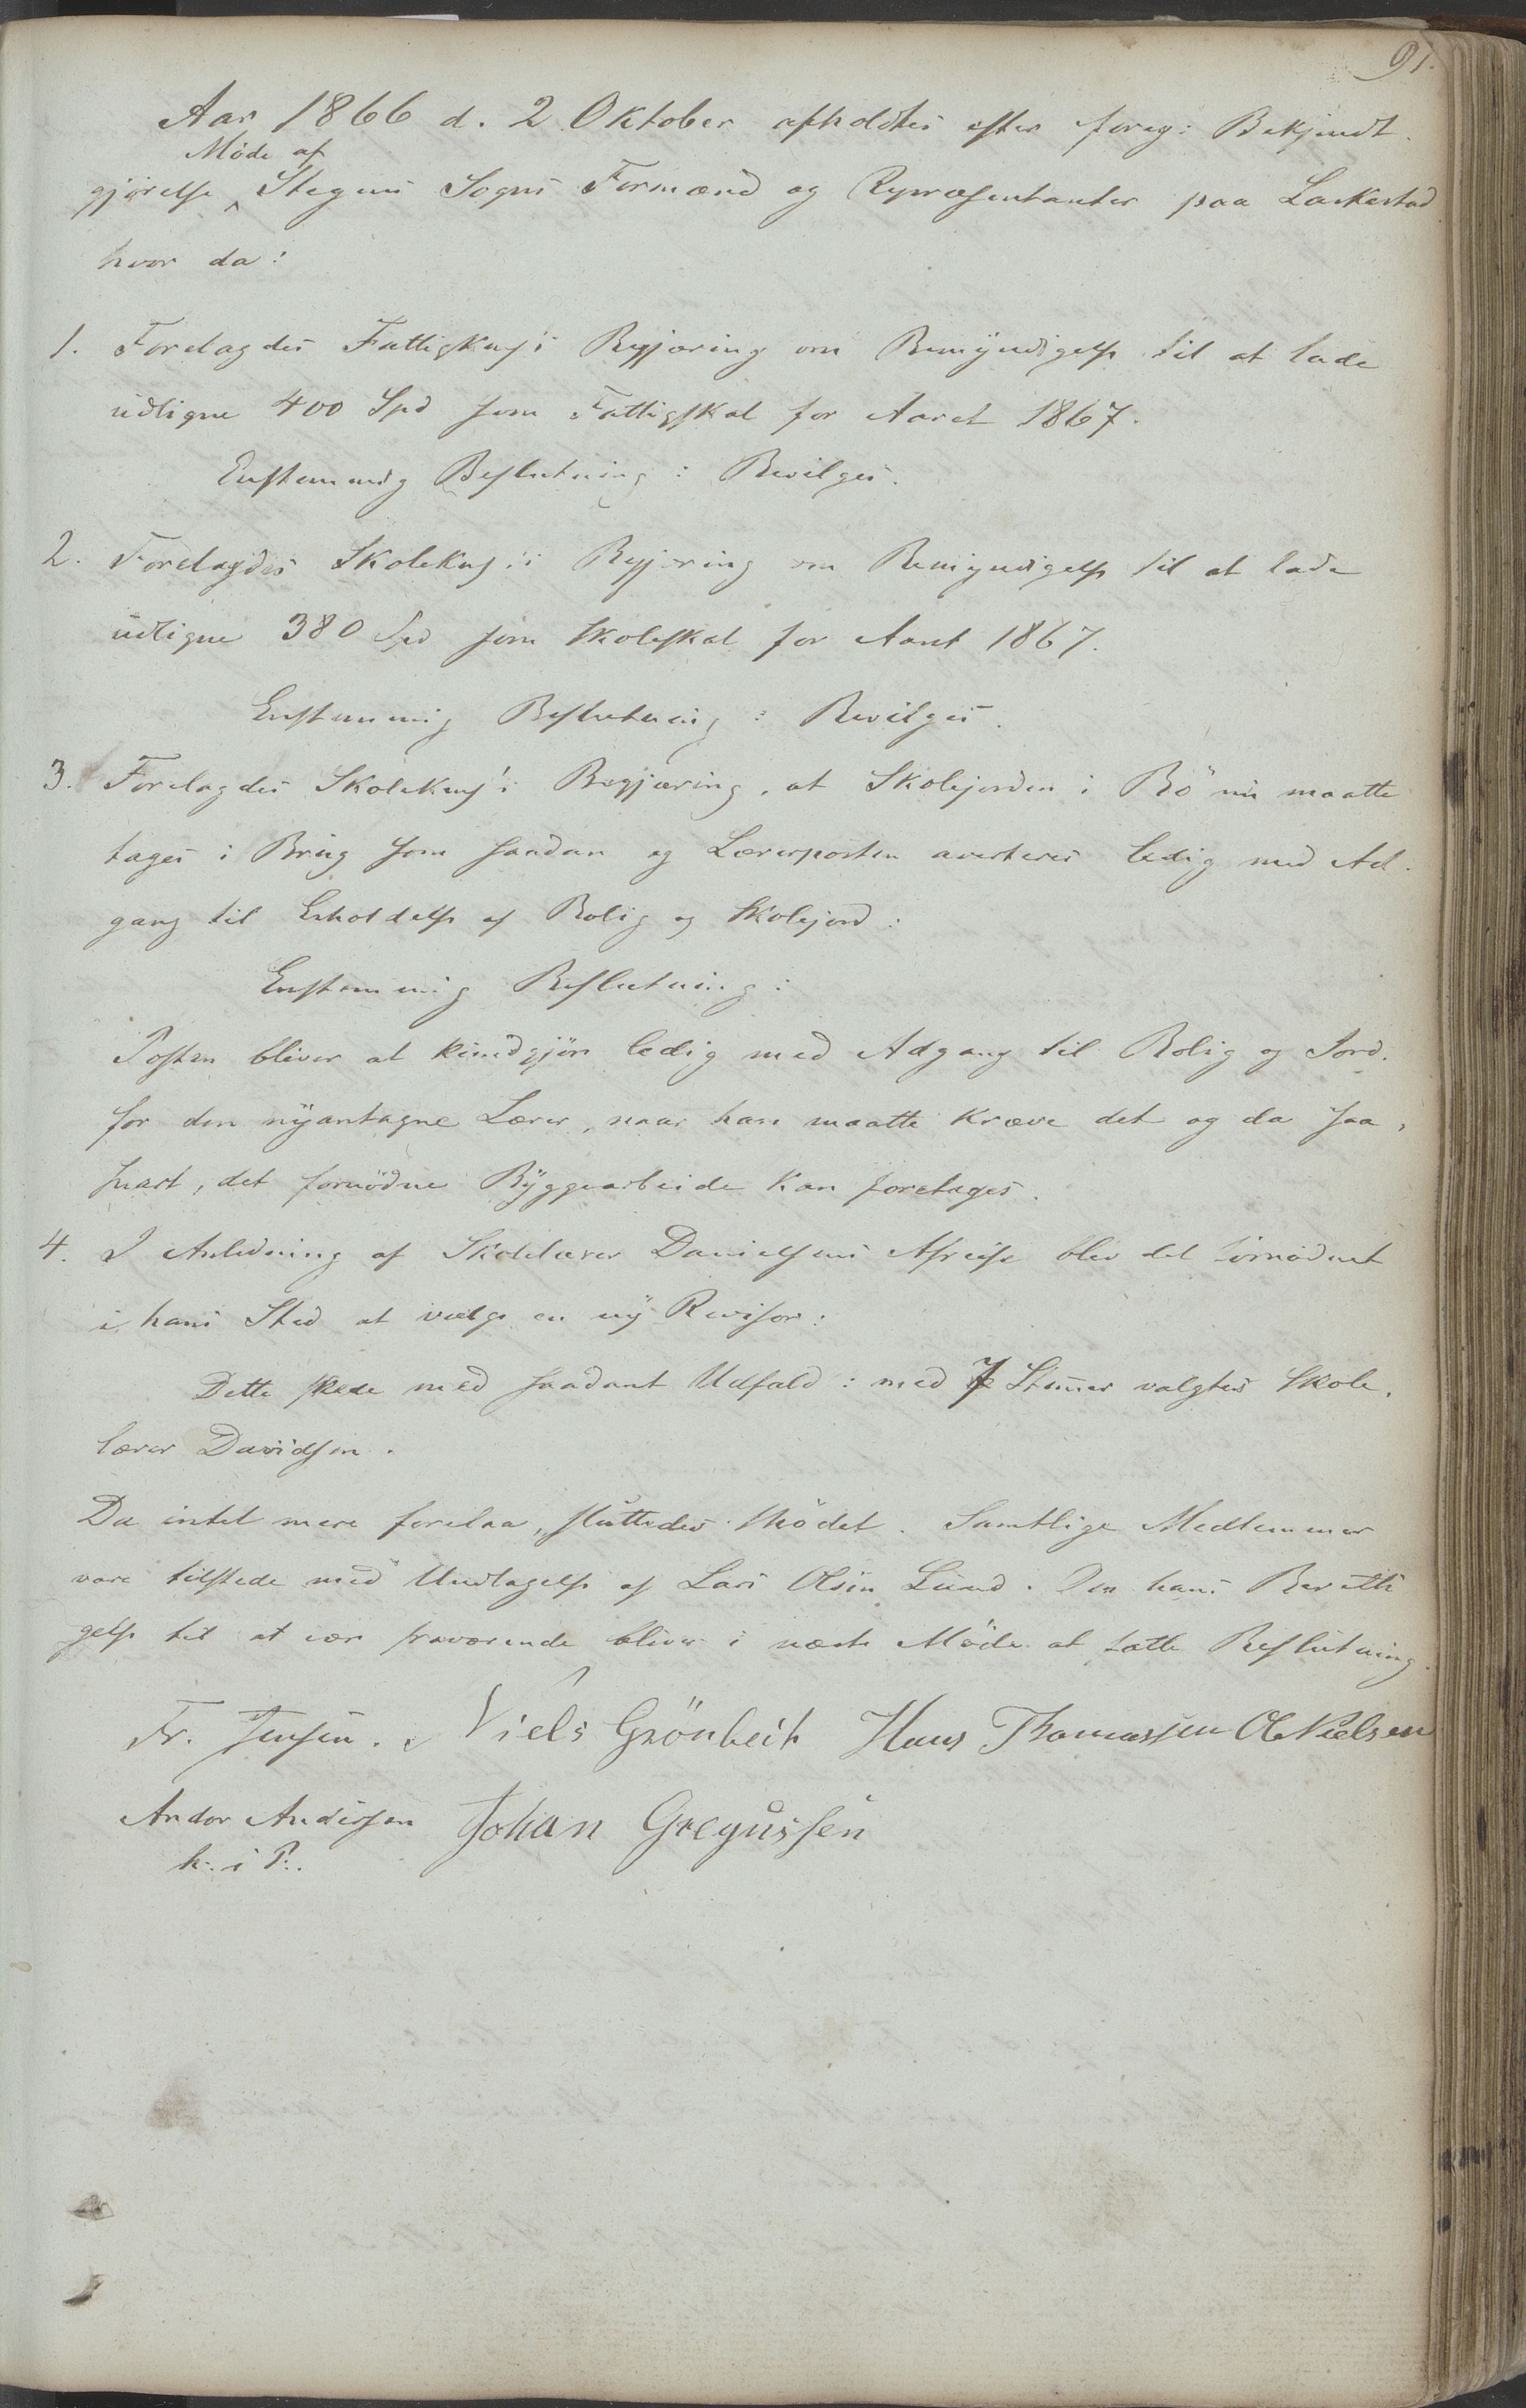 91.
Aar 1866 d. 2 Oktober afholdtes efter foreg: Bekjendt-
Möde af
gjörelse Stegens Sogns Formænd og Repræsentanter paa Laskestad
hvor da:
1. Foretagdes Fattigkms's Begjæring om Bemyndigelse til at lade
udligne 400 Spd som Fattigskat for Aaret 1867.
Enstemmig Beslutning: Bevilges.
2. Foretagdes Skolekms's Begjæring om Bemyndigelse til at lade
udligne 380 Spd som Skoleskat for Aaret 1867.
Enstemmig Beslutning: Bevilges.
3. Forelagdes Skolekms's Begjæring, at Skolejorden i Bö nu maatte
tages i Brug som saadan og Lærerposten averteres ledig med Ad-
gang til Erholdelse af Bolig og Skolejord:
Enstemmig Beslutning:
Posten bliver at kundgjöre ledig med Adgang til Bolig og Jord
for den nyantagne Lærer, naar han maatte kræve det og da saa-
snart, det fornödne Byggearbeide kan foretages.
4. I Anledning af Skolelærer Danielsens Afreise blev det fornödent
i hans Sted at vælge en ny Revisor:
Dette skede med saadant Udfald: med 7 Stemmer valgtes Skole-
lærer Davidsen.
Da intet mere forelaa, sluttedes Mödet. Samtlige Medlemmer
vare tilstede med Undtagelse af Lars Olsen Lund. Om hans Beretti
gelse til at være fraværende bliver i næste Möde at fatte Beslutning.
Fr. Jensen. Niels Grönbech Hans Thomassen Ole Nielsen
Andor Andersen Johan Gregussen
h. i P.